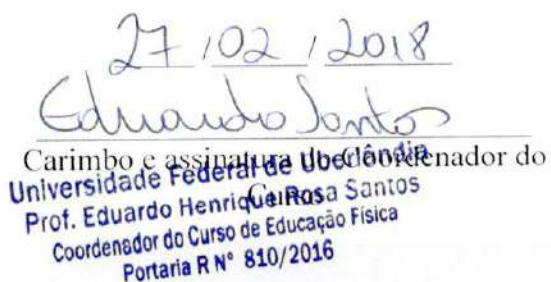 27 / 02 / 2018
Eduardo Santos
Carimbo e assinatura do Coordenador do
Curso
Universidade Federal de Uberlândia
Prof. Eduardo Henrique Rosa Santos
Coordenador do Curso de Educação Física
Portaria R Nº 810/2016